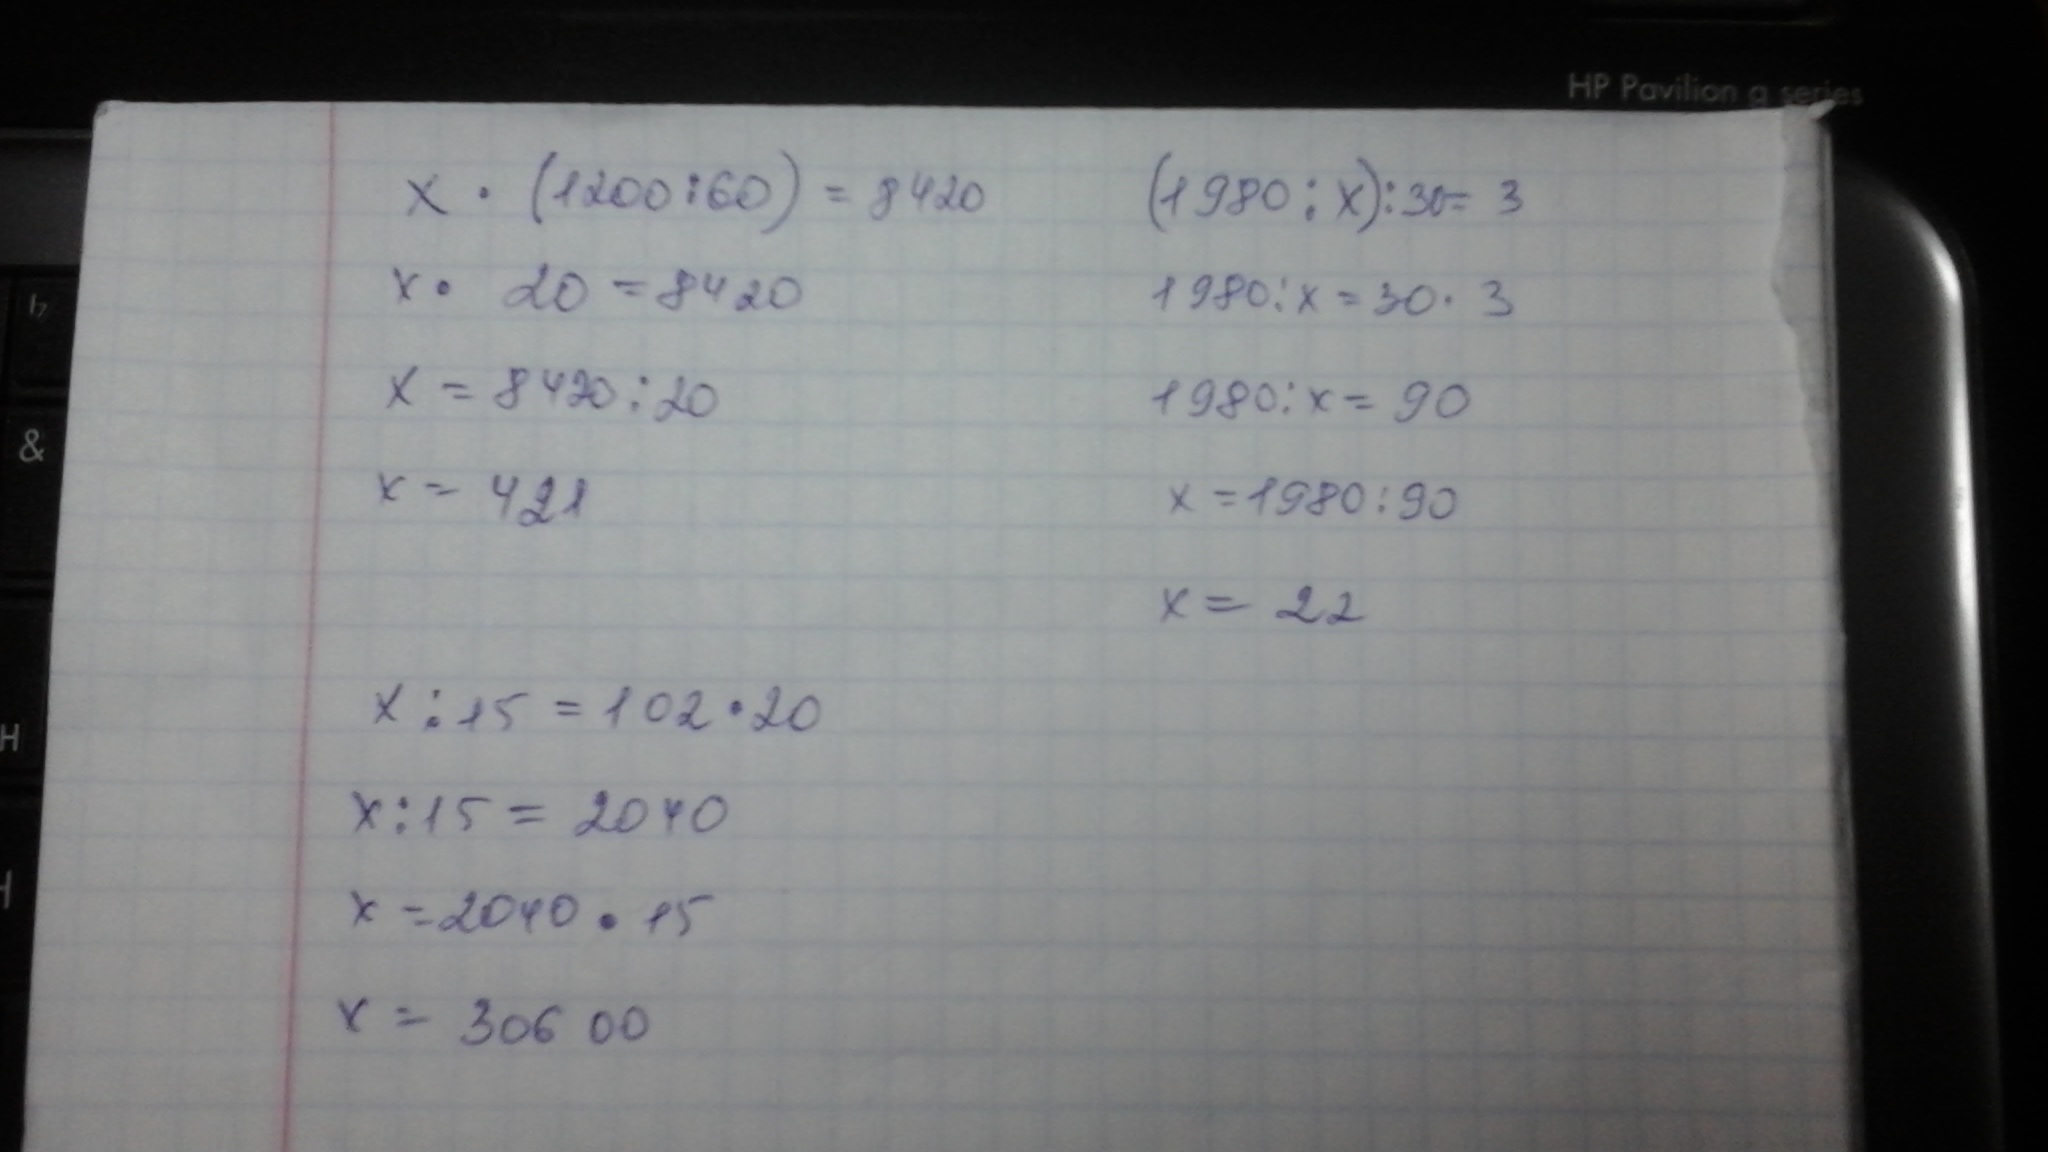 HP Pavilion g series
x · (1200:60) = 8420
x · 20 = 8420
x = 8420:20
x = 421
(1980:x):30= 3
1980:x = 30 · 3
1980:x = 90
x = 1980:90
x = 22
x:15 = 102·20
x:15 = 2040
x = 2040 · 15
x = 306 00
&
H